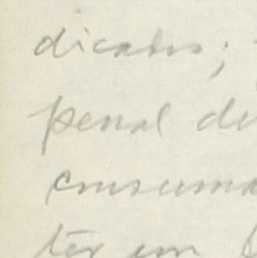 dicados;
penal de
consuma
ter em